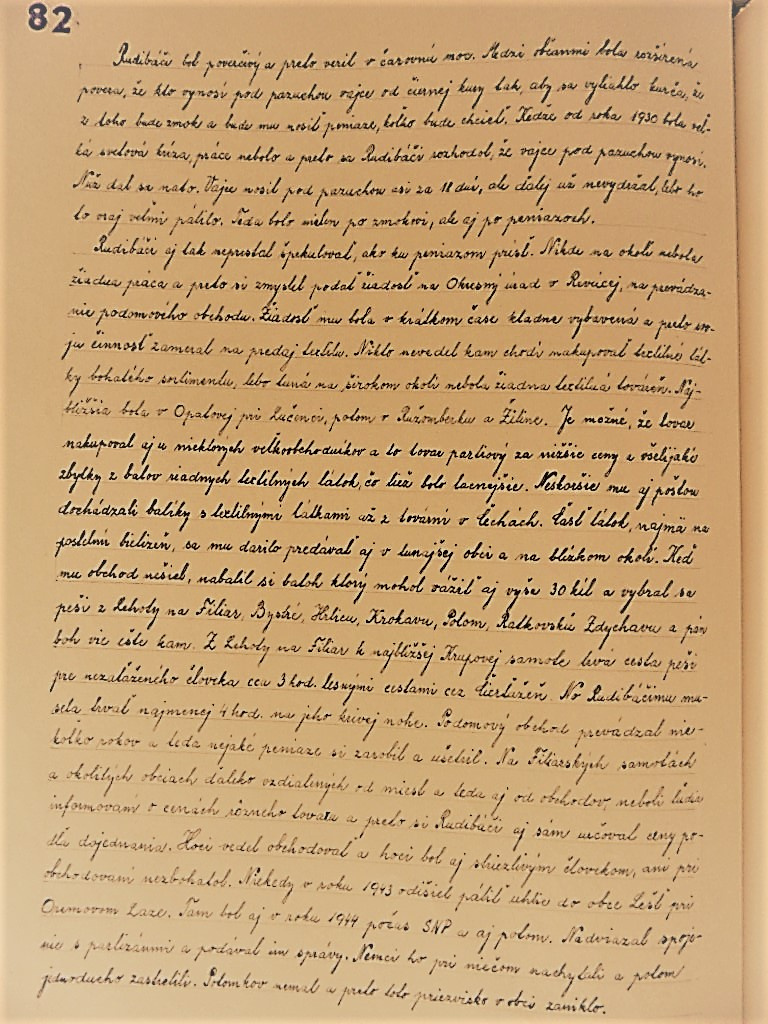 82.
Rudibáči bol poverčivý a preto veril v čarovnú moc. Medzi občanmi bola rozšírená
povera, že kto vynosí pod pazuchou vajce od čiernej kury tak, aby sa vyliahlo kurča, že
z toho bude zmok a bude mu nosiť peniaze, koľko bude chcieť. Keďže od roka 1930 bola veľ-
ká svetová kríza, práce nebolo a preto sa Rudibáči rozhodol, že vajce pod pazuchou vynosí.
Nuž dal sa nato. Vajce nosil pod pazuchou asi za 18 dní, ale ďalej už nevydržal, lebo ho
to vraj veľmi pálilo. Teda bolo nielen po zmokovi, ale aj po peniazoch.
Rudibáči aj tak neprestal špekulovať, ako ku peniazom prísť. Nikde na okolí nebola
žiadna práca a preto si zmyslel podať žiadosť na Okresný úrad v Revúcej, na prevádza-
nie podomového obchodu. Žiadosť mu bola v krátkom čase kladne vybavená a preto svo-
ju činnosť zameral na predaj textilu. Nikto nevedel kam chodí nakupovať textilné lát-
ky bohatého sortimentu, lebo tuná na širokom okolí nebola žiadna textilná továreň. Naj-
bližšia bola v Opatovej pri Lučenci, potom v Ružomberku a Žiline. Je možné, že tovar
nakupoval aj u niektorých veľkoobchodníkov a to tovar partiový za nižšie ceny a všelijaké
zbytky z balov riadnych textilných látok, čo tiež bolo lacnejšie. Neskoršie mu aj poštou
dochádzali balíky s textilnými látkami až z tovární v Čechách. Časť látok, najmä na
posteľnú bielizeň, sa mu darilo predávať aj v tunajšej obci a na blízkom okolí. Keď
mu obchod nešiel, nabalil si batoh ktorý mohol vážiť aj vyše 30 kíl a vybral sa
peši z Lehoty na Filiar, Bystré, Hrlicu, Krokavu, Polom, Ratkovskú Zdychavu a pán
boh vie ešte kam. Z Lehoty na Filiar k najbližšej Krupovej samote trvá cesta peši
pre nezaťaženého človeka cca 3 hod. lesnými cestami cez Čiertažeň. No Rudibáčimu mu-
sela trvať najmenej 4 hod. na jeho krivej nohe. Podomový obchod prevádzal nie-
koľko rokov a teda nejaké peniaze si zarobil a ušetril. Na Filiarských samotách
a okolitých obciach ďaleko vzdialených od miest a teda aj od obchodov, neboli ľudia
informovaní o cenách rôzneho tovaru a preto si Rudibáči aj sám určoval ceny po-
dľa dojednania. Hoci vedel obchodovať a hoci bol aj striezlivým človekom, ani pri
obchodovaní nezbohatol. Niekedy v roku 1943 odišiel páliť uhlie do obce Lešť pri
Oremovom Laze. Tam bol aj v roku 1944 počas SNP a aj potom. Nadviazal spoje-
nie s partizánmi a podával im správy. Nemci ho pri niečom nachytali a potom
jednoducho zastrelili. Potomkov nemal a preto toto priezvisko v obci zaniklo.